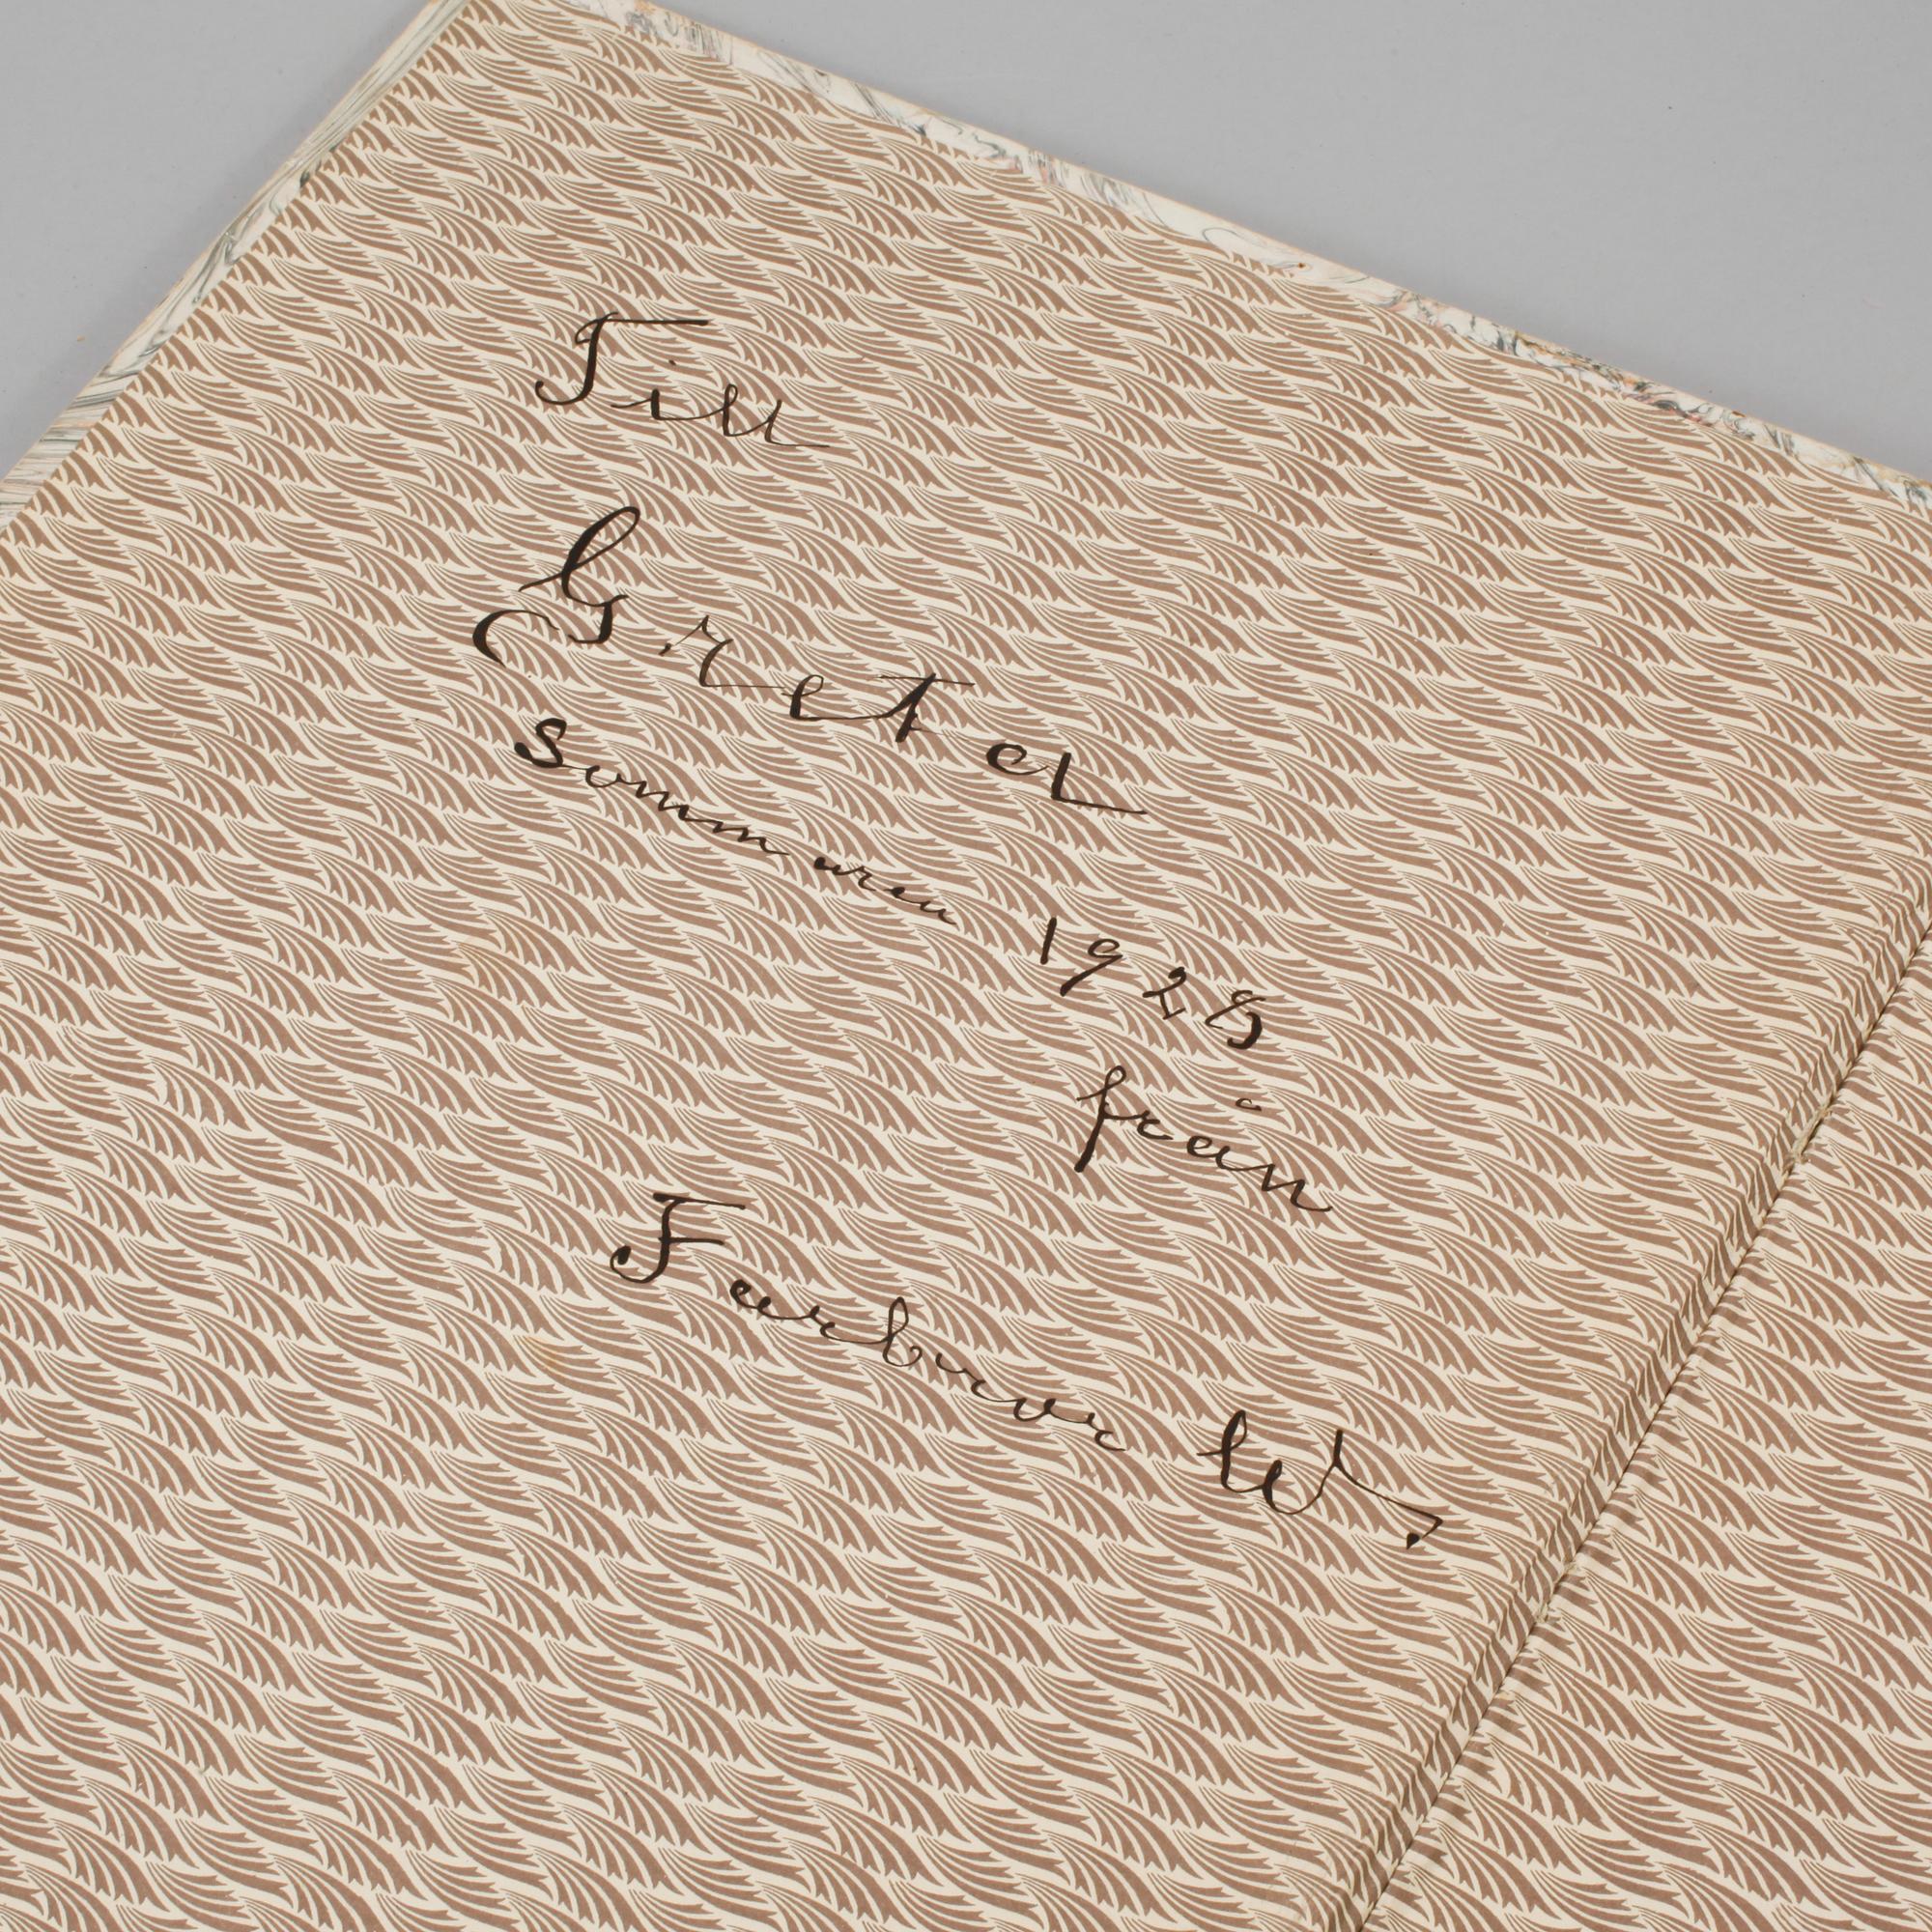 Till
Greta
Sommaren 1928
från
Farbror W,